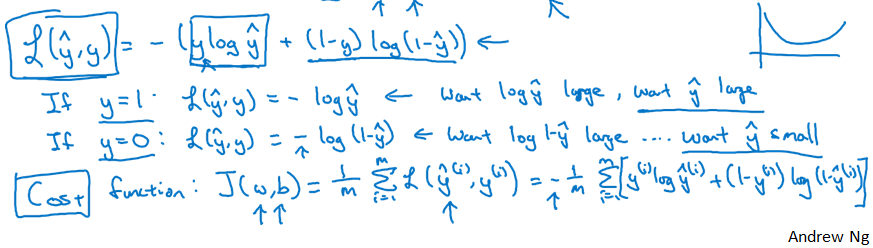 ℒ(ŷ, y) = - (y log ŷ + (1-y) log(1-ŷ)) ←
If y=1: ℒ(ŷ, y) = - log ŷ ← want log ŷ large, want ŷ large
If y=0: ℒ(ŷ, y) = - log (1-ŷ) ← want log 1-ŷ large .... want ŷ small
Cost function: J(w, b) = 1/m ∑_{i=1}^{m} ℒ(ŷ^{(i)}, y^{(i)}) = - 1/m ∑_{i=1}^{m} [y^{(i)} log ŷ^{(i)} + (1-y^{(i)}) log (1-ŷ^{(i)})]
Andrew Ng